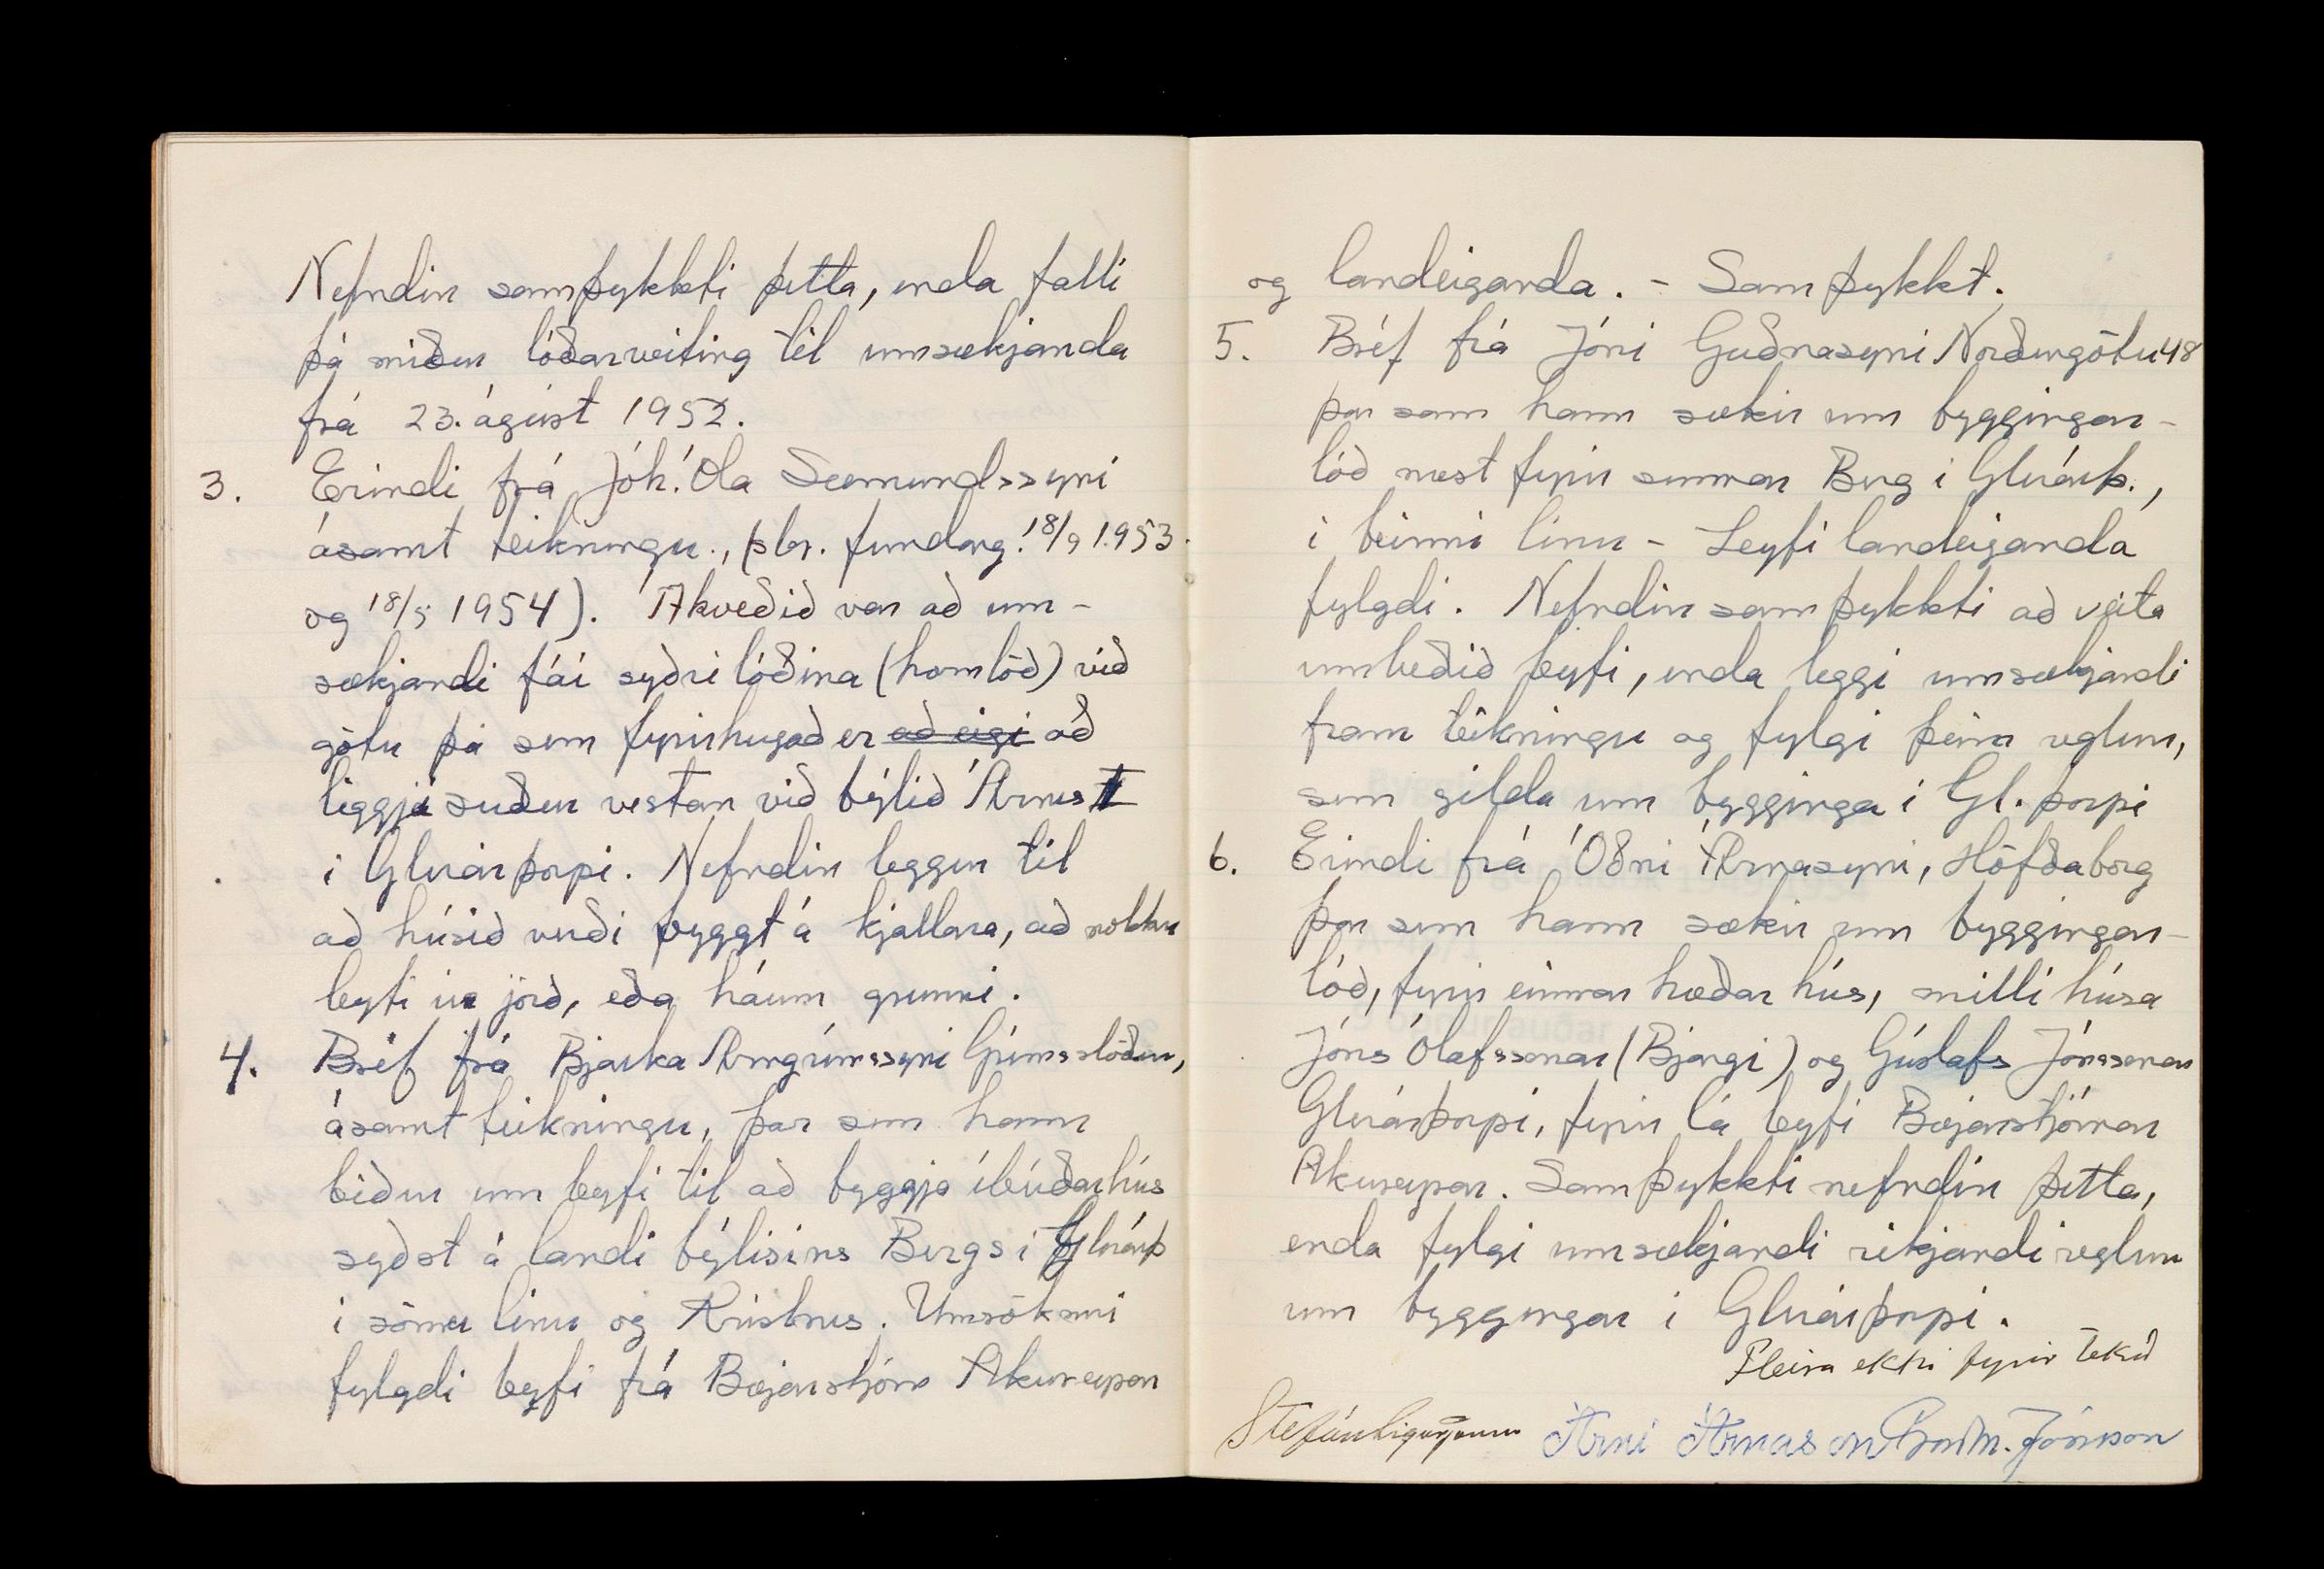 Nefndin samþykkti þetta, enda falli
þá niður lóðarveiting til umsækjanda
frá 23. ágúst 1952.
3. Erindi frá Jóh. Óla Sæmundssyni
ásamt teikningu, (sbr. fundarg. 18/9 1953
og 18/5 1954). Ákveðið var að um-
sækjandi fái syðri lóðina (hornlóð) við
götu þá sem fyrirhugað er að eigi að
liggja suður vestan við býlið Árnes
í Glerárþorpi. Nefndin leggur til
að húsið verði byggt á kjallara, að nokkru
leyti úr jörð, eða háum grunni.
4. Bréf frá Bjarka Arngrímssyni Grímsstöðum,
ásamt teikningu, þar sem hann
biður um leyfi til að byggja íbúðarhús
syðst á landi býlisins Bergs í Glerárþ
í sömu línu og Kristnes. Umsókninni
fylgdi leyfi frá Bæjarstjóra Akureyrar
og landeiganda. - Samþykkt.
5. Bréf frá Jóni Guðnasyni Norðurgötu 48
þar sem hann sækir um byggingar-
lóð næst fyrir sunnan Berg í Glerárþ.,
í beinni línu - Leyfi landeiganda
fylgdi. Nefndin samþykkti að veita
umbeðið leyfi, enda leggi umsækjandi
fram teikningu og fylgi þeim reglum,
sem gilda um byggingar í Gl.þorpi
6. Erindi frá Óðni Árnasyni, Höfðaborg
þar sem hann sækir um byggingar-
lóð, fyrir einnar hæðar hús, milli húsa
Jóns Ólafssonar (Bjargi) og Gústafs Jónssonar
Glerárþorpi, fyrir lá leyfi Bæjarstjórnar
Akureyrar. Samþykkti nefndin þetta,
enda fylgi umsækjandi ríkjandi reglum
um byggingar í Glerárþorpi.
Fleira ekki fyrir tekið
Stefán Sigurjónsson Árni Árnason Þorst. Jónsson